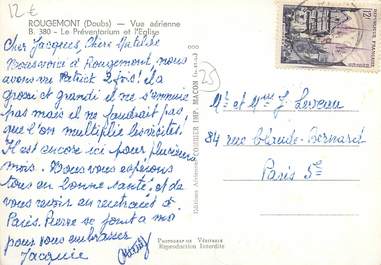 12 €
ROUGEMONT (Doubs) — Vue aérienne
B. 380 - Le Préventorium et l'Eglise
Cher Jacques, Chère Mathilde
De passage à Rougemont, nous
avons vu Patrick 2 fois! il a
grossi et grandi il ne s'ennuie
pas mais il ne faudrait pas
que l'on multiplie les visites.
Il est encore ici pour plusieurs
mois. Nous vous espérons
tous en bonne santé, et de
vous revoir en rentrant à
Paris. Pierre se joint à moi
pour vous embrasser
Jacquie
25
Editions Aériennes COMBIER IMP. MACON
Mr et Mme J. Leveau
84 rue Claude-Bernard
Paris 5e
12F
PHOTOGRAP. DE VÉRITABLE
Reproduction Interdite